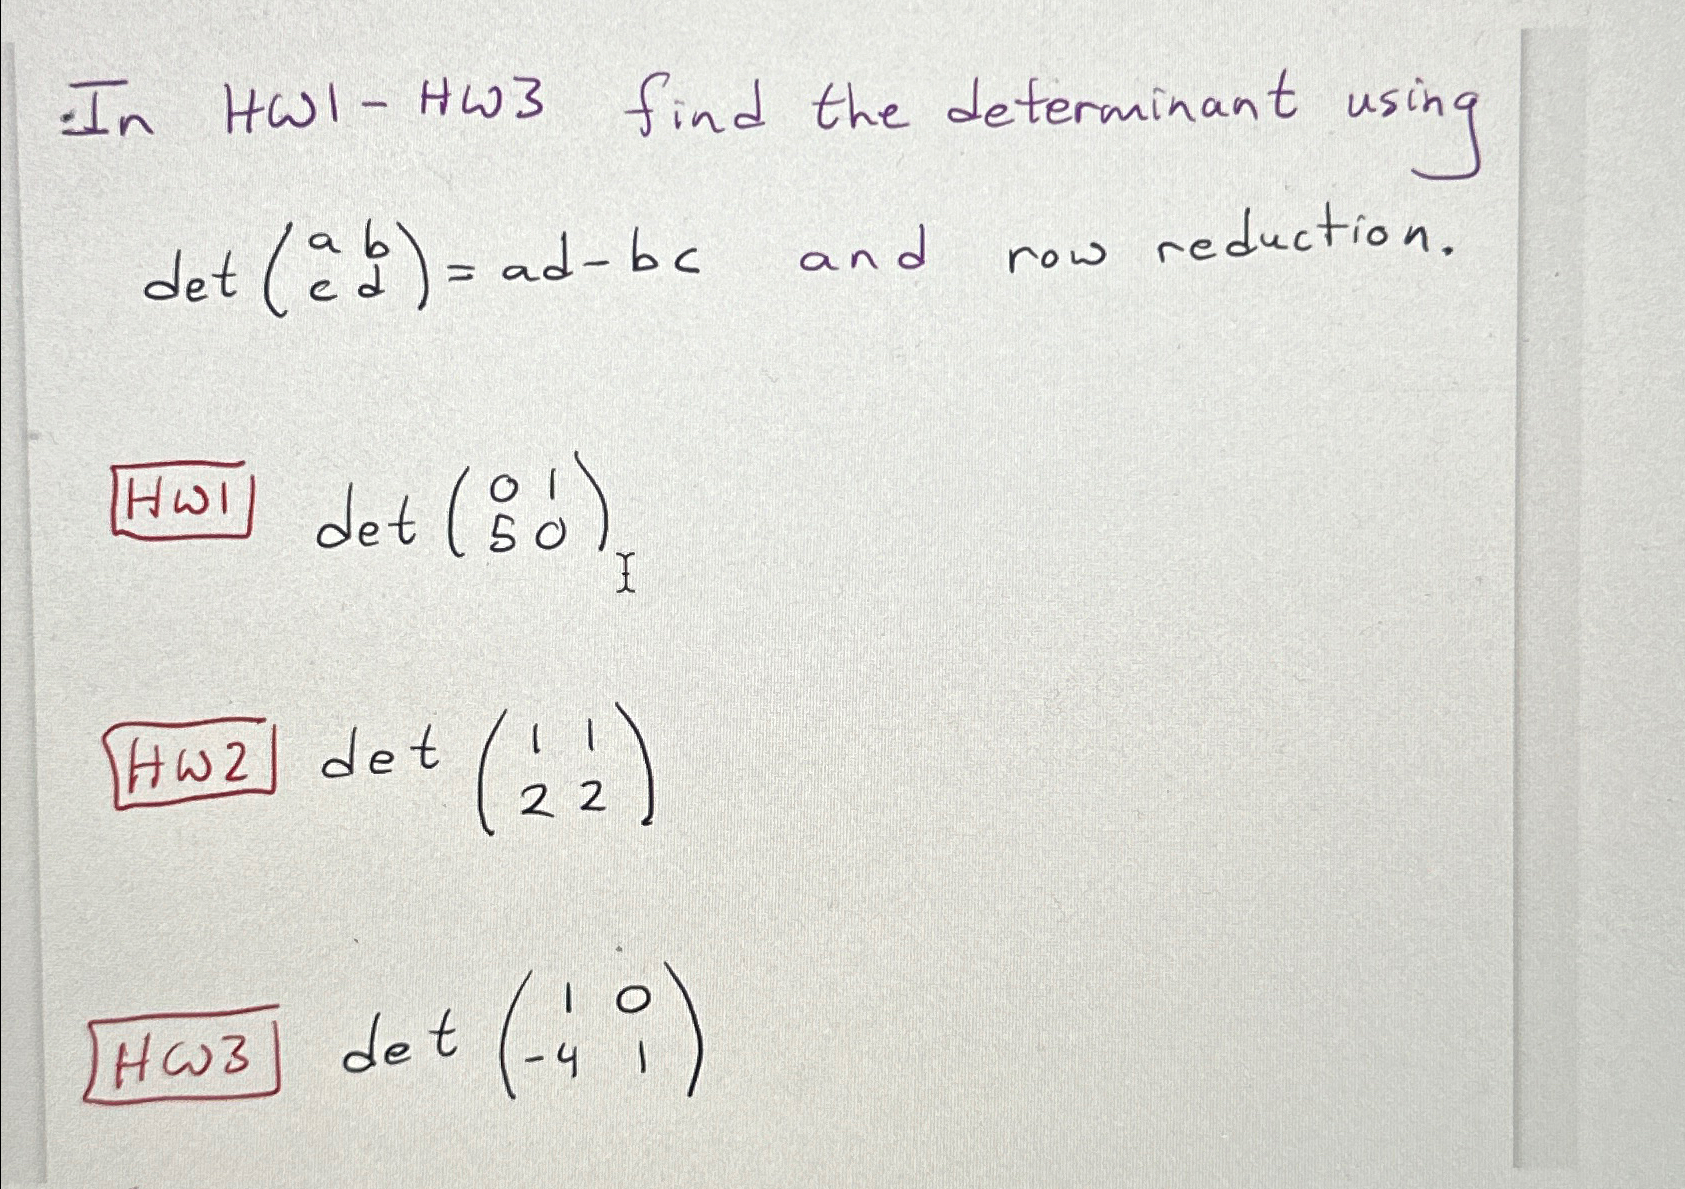 In HW1 - HW3 find the determinant using
det (a b
c d) = ad - bc and row reduction.
HW1 det (0 1
5 0)
HW2 det (1 1
2 2)
HW3 det (1 0
-4 1)